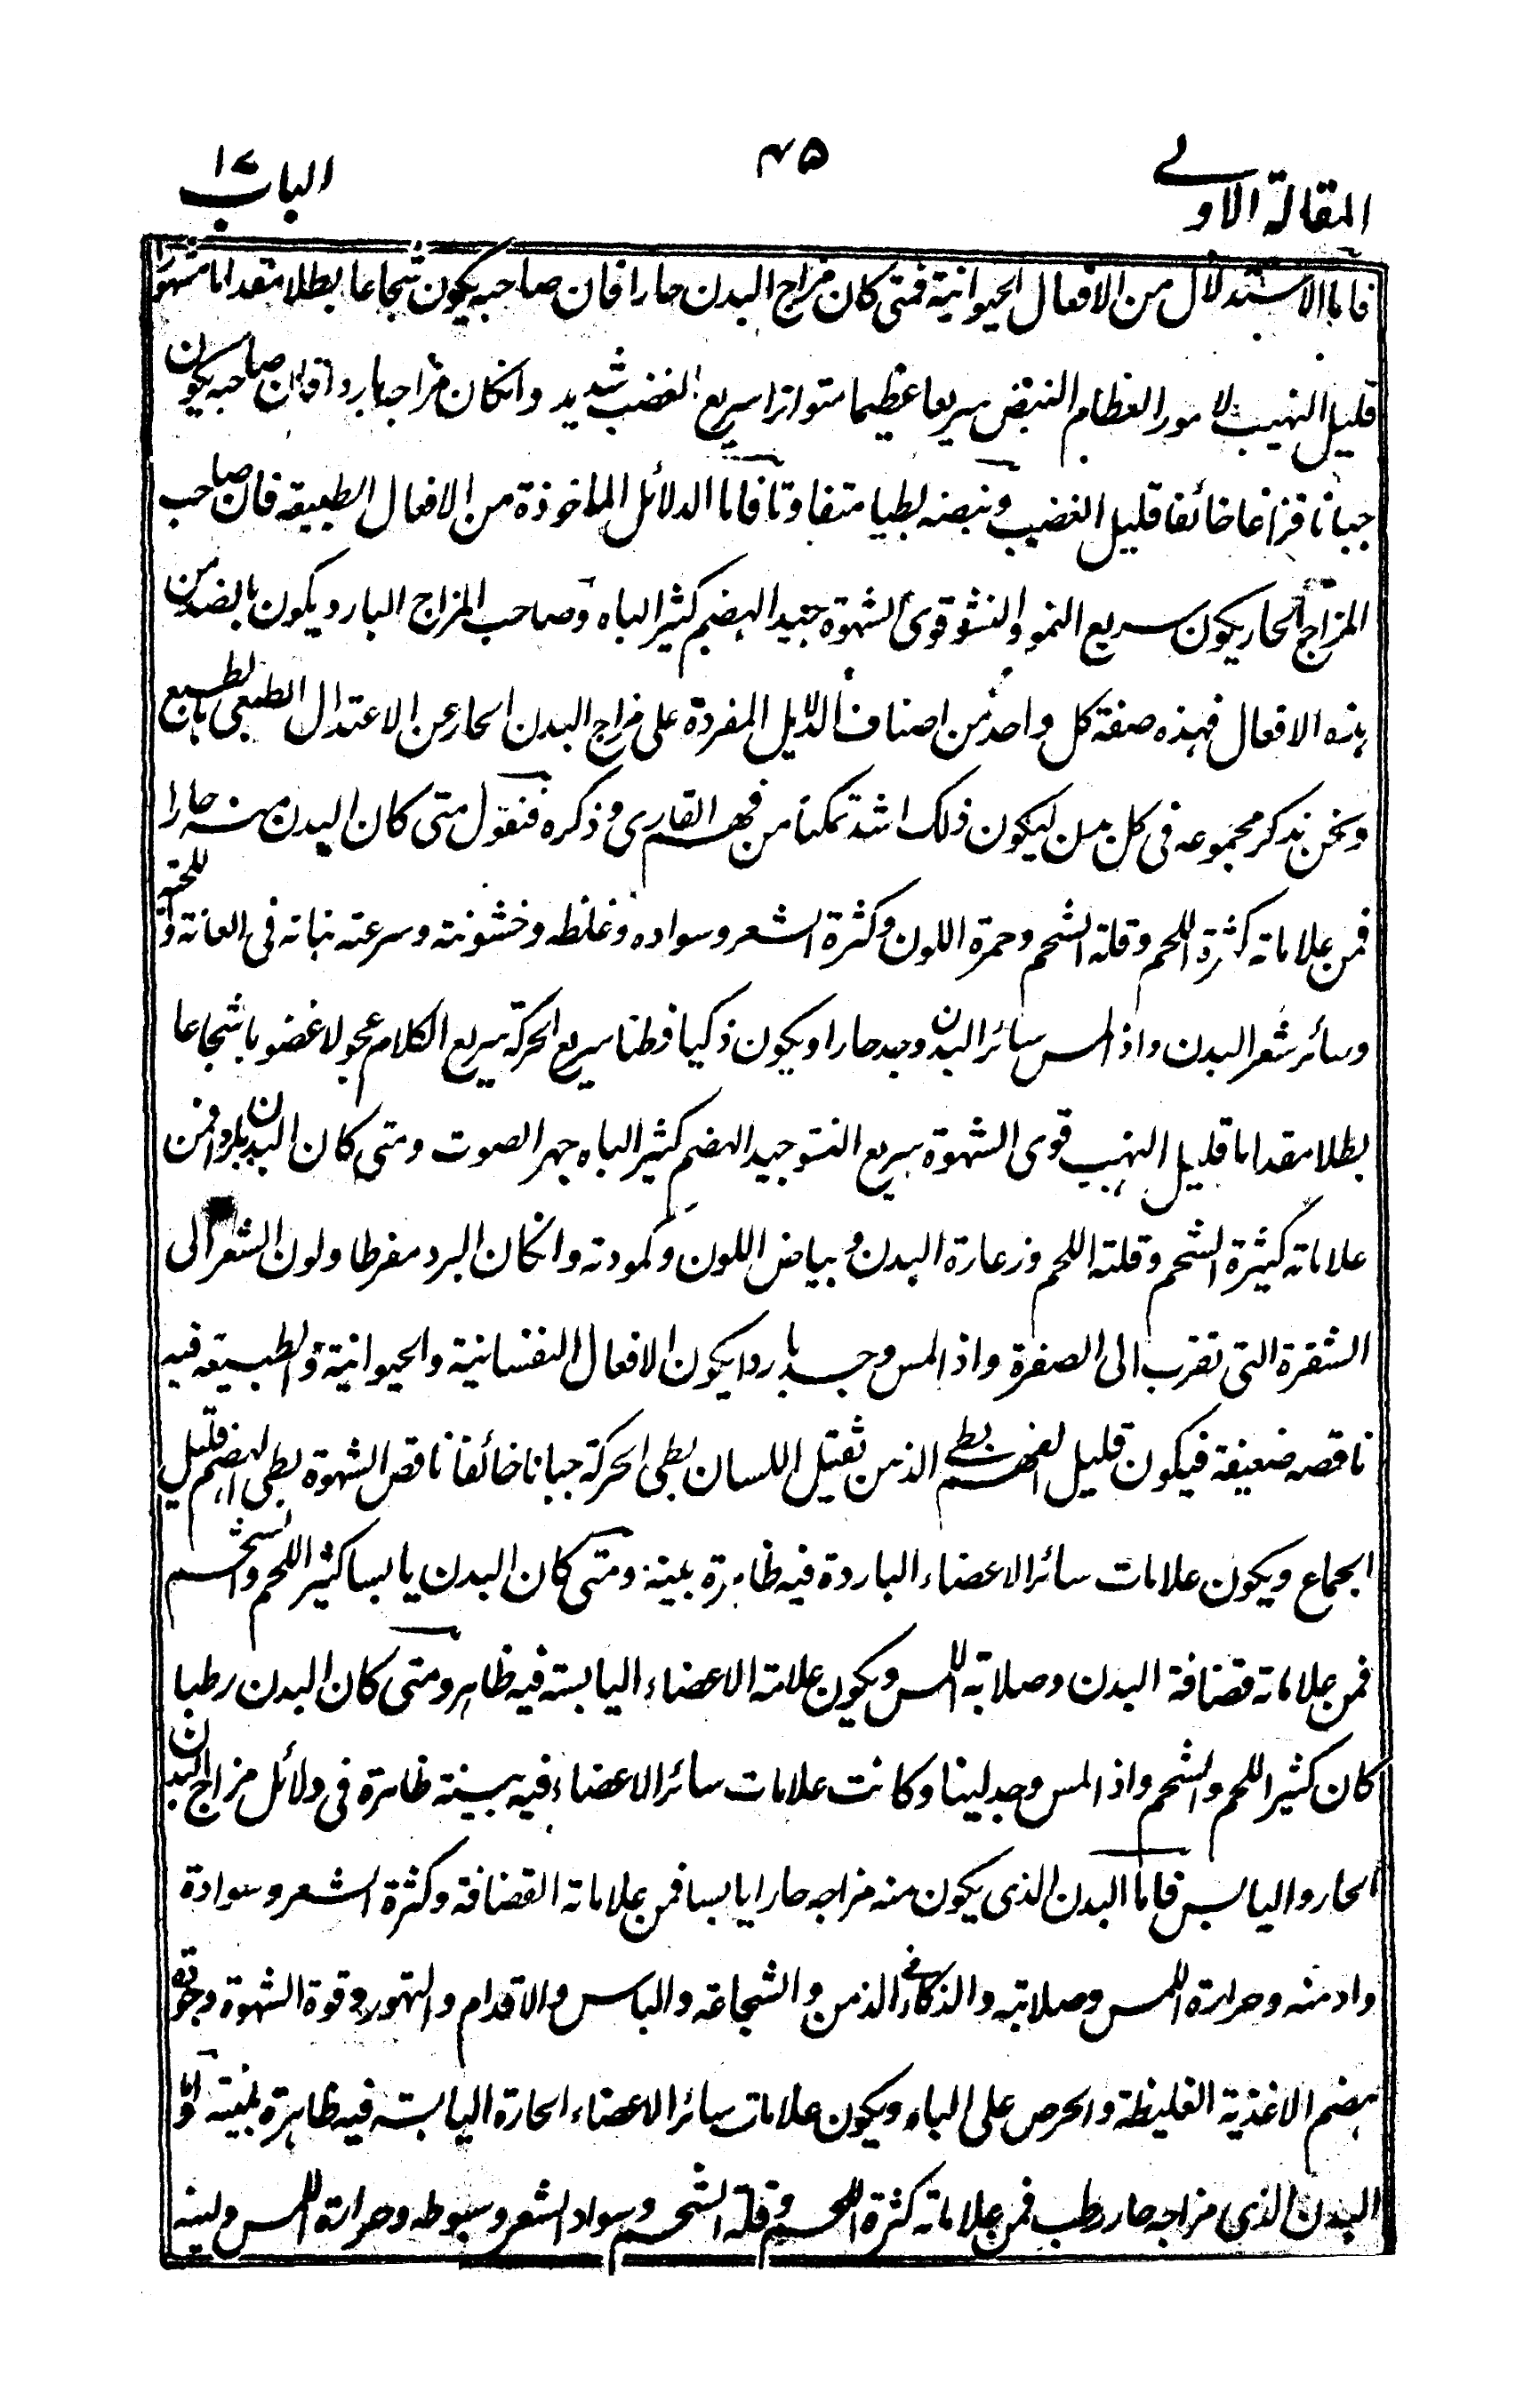 المقالة الاولے
۴۵
الباب ۱۷
فاما الاستدلال من الافعال الحيوانية فمتى كان مزاج البدن حارا فان صاحبه يكون شجاعا بطلا مقداما مشهورا
قليل التهيب لامور العظام النبض سريعا عظيما متواترا سريع الغضب شديد وانكان مزاجه باردا فان صاحبه يكون
جبانا فزاعا خائفا قليل الغضب ونبضه بطيا متفاوتا فاما الدلائل الماخوذة من الافعال الطبيعه فان صاحب
المزاج الحار يكون سريع النمو والنشو قوى الشهوة جيد الهضم كثير الباه وصاحب المزاج البارد يكون بالضد من
هذه الافعال فهذه صفة كل واحد من اصناف الدلايل المفردة على مزاج البدن الحار عن الاعتدال الطبعى بالطبع
ونحن نذكر مجموعه فى كل من ليكون ذلك اشد تمكنا من فهم القارى وذكره فنقول متى كان البدن منه حارا
فمن علاماته كثرة اللحم وقلة الشحم وحمرة اللون وكثرة الشعر وسواده وغلظه وخشونته وسرعته نباته فى العانة واللحية
وسائر شعر البدن واذا لمس سائر البدن وجد حارا ويكون ذكيا فطنا سريع الحركة سريع الكلام عجولا غضوبا شجاعا
بطلا مقداما قليل التهيب قوى الشهوة سريع النشو جيد الهضم كثير الباه جهر الصوت ومتى كان البدن باردا فمن
علاماته كثيرة الشحم وقلته اللحم وزعارة البدن وبياض اللون وكمودته وانكان البرد مفرطا ولون الشعر الى
الشقرة التى تقرب الى الصفرة واذا لمس وجد باردا يكون الافعال النفسانية والحيوانية والطبيعه فيه
ناقصه ضعيفة فيكون قليل الفهم بطى الذهن ثقيل اللسان بطى الحركة جبانا خائفا ناقص الشهوة بطى الهضم قليل
الجماع ويكون علامات سائر الاعضاء الباردة فيه ظاهرة بينة ومتى كان البدن يابسا كثير اللحم والشحم
فمن علاماته قضافة البدن وصلابة اللمس ويكون علامته الاعضاء اليابسته فيه ظاهر ومتى كان البدن رطبا
كان كثير اللحم والشحم واذا لمس وجد لينا وكانت علامات سائر الاعضاء فيه بينة ظاهرة فى دلائل مزاج البدن
الحار واليابس فاما البدن الذى يكون منه مزاجه حارا يابسا فمن علاماته القضافة وكثرة الشعر وسوادة
وادمنه وحرارة اللمس وصلابته والذكاء فى الذهن والشجاعة والباس والاقدام والتهور وقوة الشهوة وجودة
هضم الاغذية الغليظة والحرص على الباه ويكون علامات سائر الاعضاء الحارة اليابسة فيه ظاهرة بينة واما
البدن الذى مزاجه حار رطب فمن علاماته كثرة اللحم وقلة الشحم وسواد الشعر وسبوطه وحرارة اللمس ولينه